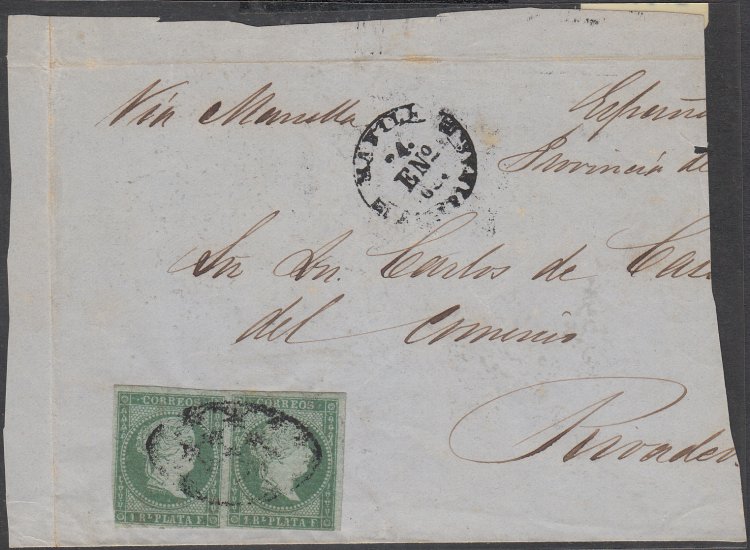 Via Marsella
España
Provincia de
MANILA
4.
ENº
Sr. Dn. Carlos de
del Comercio
Rivade
CORREOS CORREOS
1 Rl. PLATA F. 1 Rl. PLATA F.